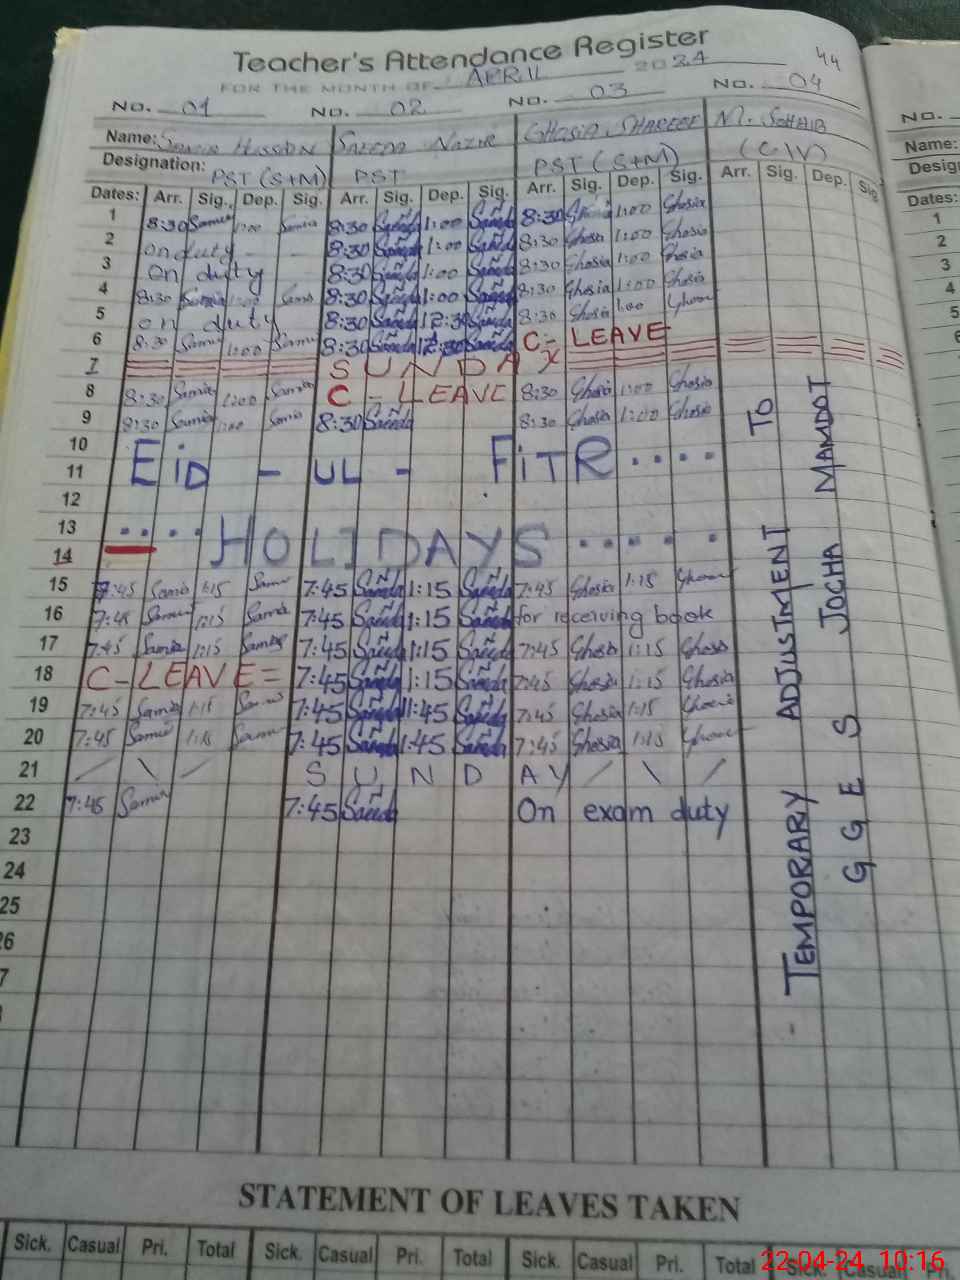 Teacher's Attendance Register
44
FOR THE MONTH OF APRIL 2024
No. 01 No. 02 No. 03 No. 04
No.
Name: Samia Hussain Saeeda Nazir Ghosia Shareef M. Sohaib
Name:
Designation: PST (S+M) PST PST (S+M) (C-IV)
Dates: Arr. Sig. Dep. Sig. Arr. Sig. Dep. Sig. Arr. Sig. Dep. Sig. Arr. Sig. Dep. Sig
Dates:
1 8:30 Samia 1:00 Samia 8:30 Saeeda 1:00 Saeeda 8:30 Ghosia 1:00 Ghosia
1
2 on duty 8:30 Saeeda 1:00 Saeeda 8:30 Ghosia 1:00 Ghosia
2
3 on duty 8:30 Saeeda 1:00 Saeeda 8:30 Ghosia 1:00 Ghosia
3
4 8:30 Samia 1:00 Samia 8:30 Saeeda 1:00 Saeeda 8:30 Ghosia 1:00 Ghosia
4
5 on duty 8:30 Saeeda 12:30 Saeeda 8:30 Ghosia 1:00 Ghosia
5
6 8:30 Samia 1:00 Samia 8:30 Saeeda 12:30 Saeeda C - LEAVE
6
7 SUNDAY
8 8:30 Samia 1:00 Samia C - LEAVE 8:30 Ghosia 1:00 Ghosia
9 8:30 Samia 1:00 Samia 8:30 Saeeda 8:30 Ghosia 1:00 Ghosia
10
11 EiD - UL - FiTR ....
12
13 .... HOLIDAYS .....
14
15 7:45 Samia 1:15 Samia 7:45 Saeeda 1:15 Saeeda 7:45 Ghosia 1:15 Ghosia
16 7:45 Samia 1:15 Samia 7:45 Saeeda 1:15 Saeeda for receiving book
17 7:45 Samia 1:15 Samia 7:45 Saeeda 1:15 Saeeda 7:45 Ghosia 1:15 Ghosia
18 C-LEAVE= 7:45 Saeeda 1:15 Saeeda 7:45 Ghosia 1:15 Ghosia
19 7:45 Samia 1:15 Samia 7:45 Saeeda 1:45 Saeeda 7:45 Ghosia 1:15 Ghosia
20 7:45 Samia 1:15 Samia 7:45 Saeeda 1:45 Saeeda 7:45 Ghosia 1:15 Ghosia
21 / \ / SUNDAY / \ /
22 7:45 Samia 7:45 Saeeda On exam duty
23
24
25
26
TEMPORARY ADJUSTMENT TO
GGES JOCHA MAMDOT
STATEMENT OF LEAVES TAKEN
Sick. Casual Pri. Total Sick. Casual Pri. Total Sick. Casual Pri. Total Sick. Casual Pri.
22-04-24 10:16